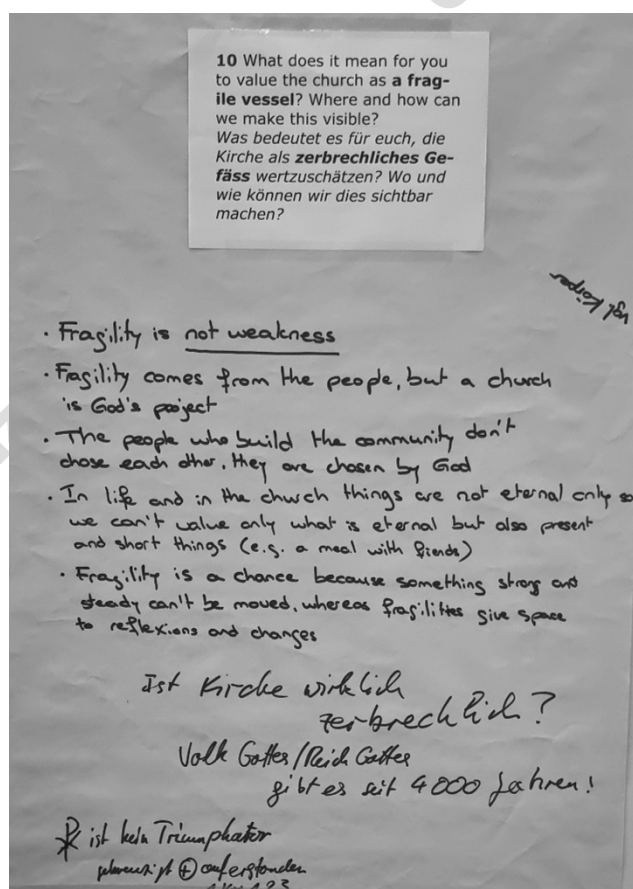 10 What does it mean for you
to value the church as a frag-
ile vessel? Where and how can
we make this visible?
Was bedeutet es für euch, die
Kirche als zerbrechliches Ge-
fäss wertzuschätzen? Wo und
wie können wir dies sichtbar
machen?
vgl Körper
· Fragility is not weakness
· Fragility comes from the people, but a church
is God's project
· The people who build the community don't
chose each other, they are chosen by God
· In life and in the church things are not eternal only so
we can't value only what is eternal but also present
and short things (e.g. a meal with friends)
· Fragility is a chance because something strong and
steady can't be moved, whereas fragilities give space
to reflexions and changes
Ist Kirche wirklich
zerbrechlich?
Volk Gottes/Reich Gottes
gibt es seit 4000 Jahren!
ist kein Triumphator
auferstanden